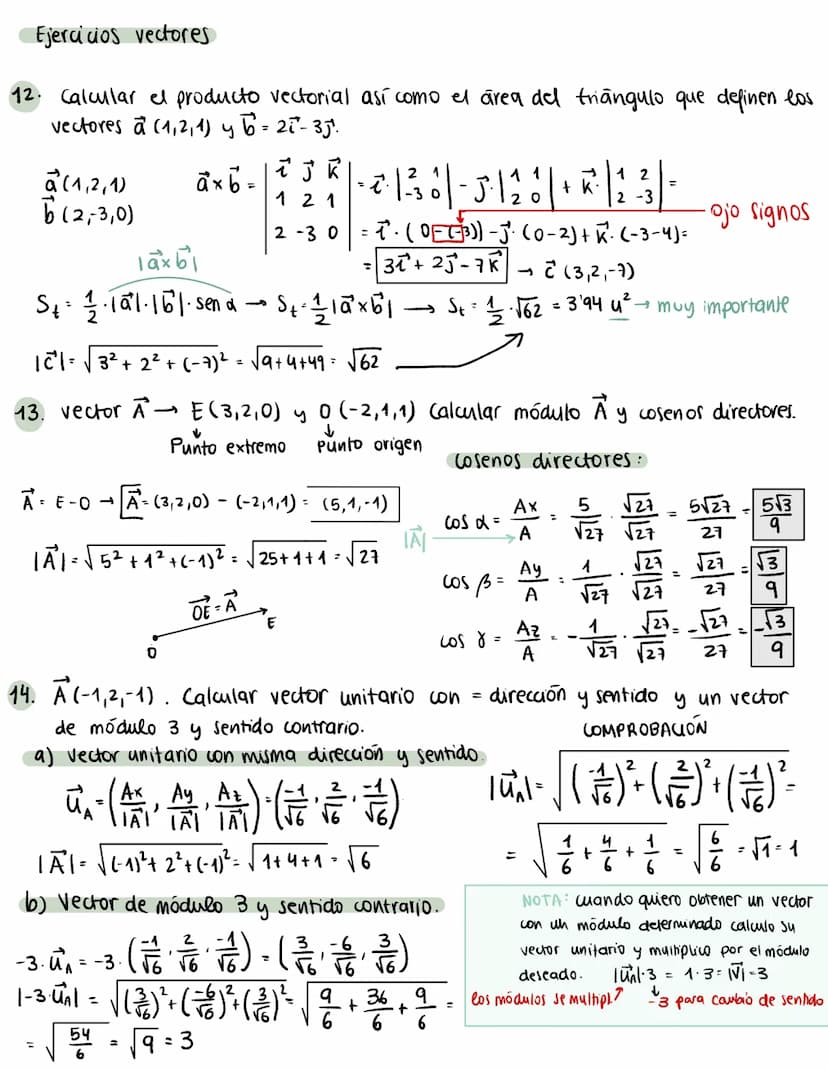 Ejercicios vectores
12. Calcular el producto vectorial así como el área del triángulo que definen los
vectores a⃗ (1,2,1) y b⃗ = 2i⃗ - 3j⃗.
a⃗ (1,2,1)
b⃗ (2,-3,0)
a⃗ x b⃗ = | i⃗ j⃗ k⃗ | = i⃗ · | 2 1 | - j⃗ · | 1 1 | + k⃗ · | 1 2 | =
| 1 2 1 | | -3 0 | | 2 0 | | 2 -3 |
| 2 -3 0 | = i⃗ · (0-(-3)) - j⃗ · (0-2) + k⃗ · (-3-4) =
ojo signos
= 3i⃗ + 2j⃗ - 7k⃗ → c⃗ (3,2,-7)
|a⃗ x b⃗|
St = 1/2 · |a⃗| · |b⃗| · sen α → St = 1/2 |a⃗ x b⃗| → St = 1/2 · √62 = 3'94 u² → muy importante
|c⃗| = √(3² + 2² + (-7)²) = √(9+4+49) = √62
13. vector A⃗ → E(3,2,0) y O(-2,1,1) Calcular módulo A⃗ y cosenos directores.
Punto extremo punto origen
cosenos directores:
A⃗ = E-O → A⃗ = (3,2,0) - (-2,1,1) = (5,1,-1)
|A⃗| = √(5² + 1² + (-1)²) = √(25+1+1) = √27
|A⃗|
cos α = Ax/A = 5/√27 · √27/√27 = 5√27/27 = 5√3/9
cos β = Ay/A = 1/√27 · √27/√27 = √27/27 = √3/9
cos γ = Az/A = -1/√27 · √27/√27 = -√27/27 = -√3/9
OE⃗ = A⃗
E
O
14. A⃗ (-1,2,-1). Calcular vector unitario con = dirección y sentido y un vector
de módulo 3 y sentido contrario.
COMPROBACIÓN
a) Vector unitario con misma dirección y sentido.
u⃗A = (Ax/|A⃗|, Ay/|A⃗|, Az/|A⃗|) = (-1/√6, 2/√6, -1/√6)
|A⃗| = √((-1)² + 2² + (-1)²) = √(1+4+1) = √6
|u⃗A| = √((-1/√6)² + (2/√6)² + (-1/√6)²) =
= √(1/6 + 4/6 + 1/6) = √(6/6) = √1 = 1
b) Vector de módulo 3 y sentido contrario.
-3 · u⃗A = -3 · (-1/√6, 2/√6, -1/√6) = (3/√6, -6/√6, 3/√6)
|-3 · u⃗A| = √((3/√6)² + (-6/√6)² + (3/√6)²) = √(9/6 + 36/6 + 9/6) =
= √(54/6) = √9 = 3
NOTA: cuando quiero obtener un vector
con un módulo determinado calculo su
vector unitario y multiplico por el módulo
deseado. |u⃗A| · 3 = 1 · 3 = |V⃗| = 3
los módulos se multipl. -3 para cambio de sentido